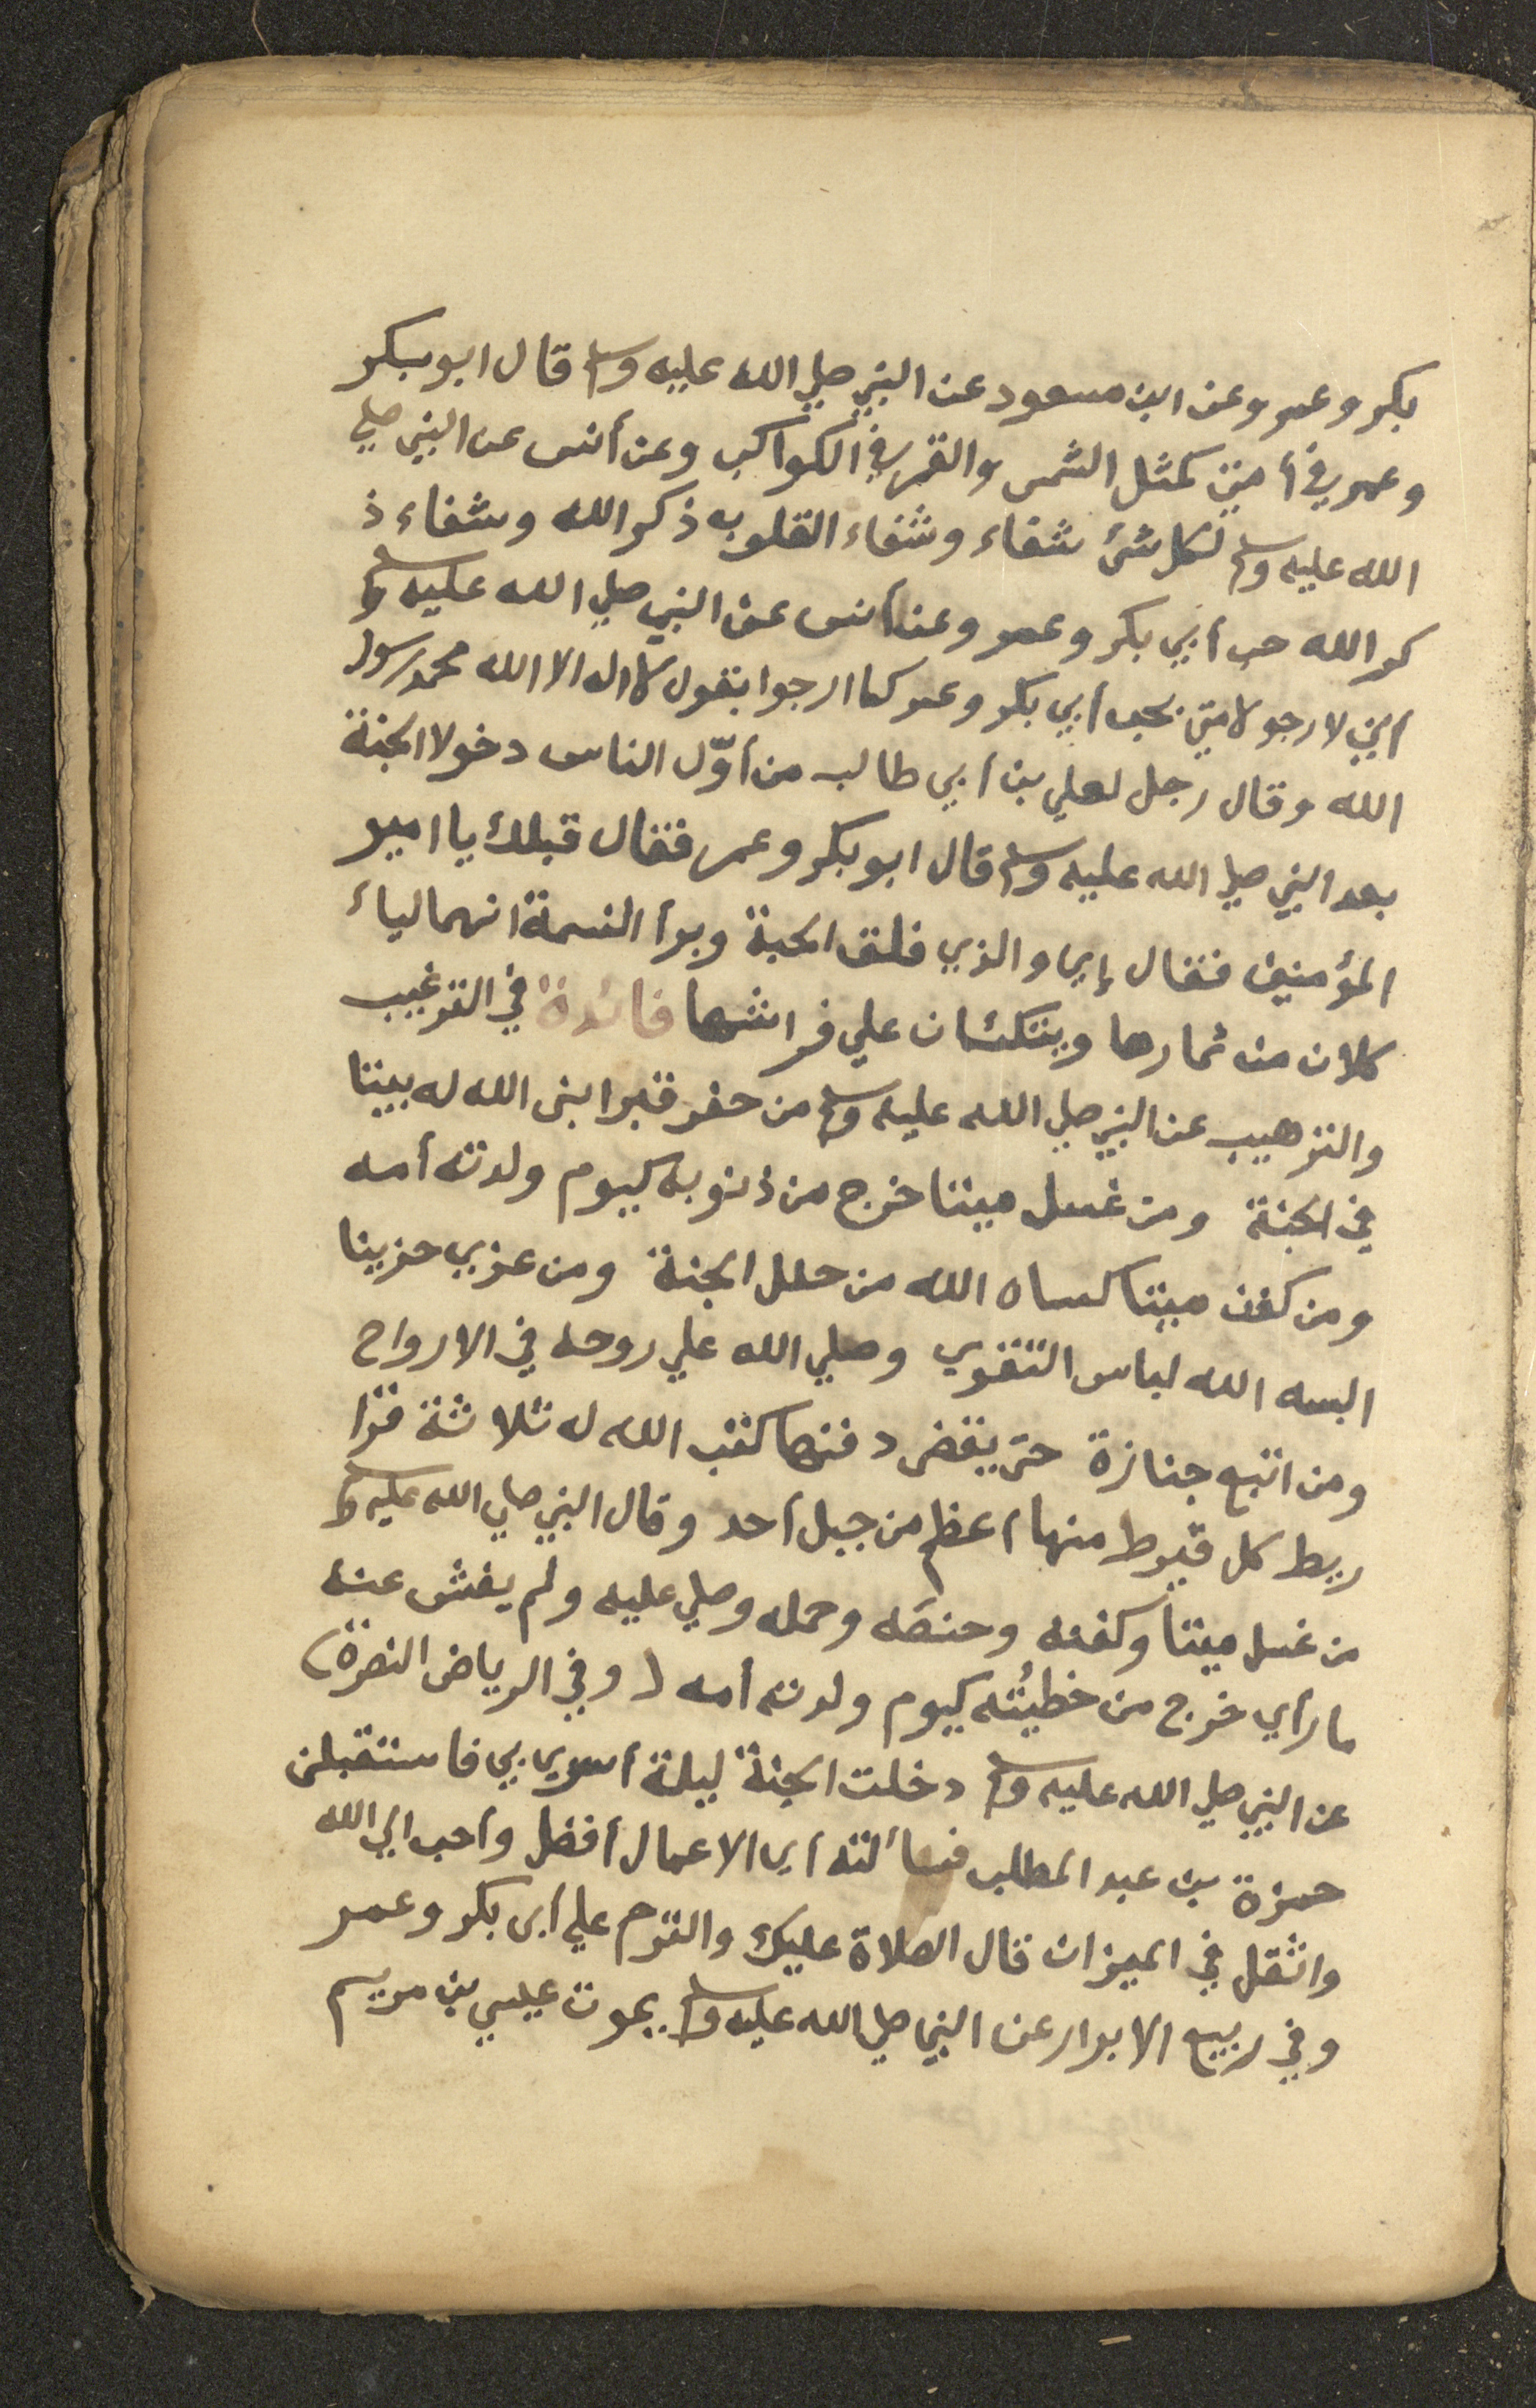 بكر وعمر وعن ابن مسعود عن النبي صلي الله عليه وسلم قال ابو بكر
وعمر في أمتي كمثل الشمس والقمر في الكواكب وعن أنس عن النبي صلي
الله عليه وسلم لكل شئ شفاء وشفاء القلوب ذكر الله وشفاء ذ
كر الله حب أبي بكر وعمر وعن أنس عن النبي صلي الله عليه وسلم
أني لارجو لامتي بحب أبي بكر وعمر كما ارجوا بقول لا اله الا الله محمد رسول
الله وقال رجل لعلي بن أبي طالب من أوّل الناس دخولا الجنة
بعد النبي صلي الله عليه وسلم قال ابو بكر وعمر فقال قبلك يا امير
المؤمنين فقال إي والذي فلق الحبة وبرأ النسمة انهما ليا ء
كلان من ثمارها ويتكئان علي فراشها فائدة في الترغيب
والترهيب عن النبي صلي الله عليه وسلم من حفر قبرا بنى الله له بيتا
في الجنة ومن غسل ميتا خرج من ذنوبه كيوم ولدته أمه
ومن كفن ميتا كساه الله من حلل الجنة ومن عزي حزينا
البسه الله لباس التقوي وصلي الله علي روحه في الارواح
ومن اتبع جنازة حتى يقضى دفنها كتب الله له ثلاثة قرا
ريط كل قيرط منها أعظم من جبل أحد وقال النبي صلي الله عليه وسلم
من غسل ميتا وكفنه وحنطه وحمله وصلي عليه ولم يفش عنه
ما رأي خرج من خطيئته كيوم ولدته أمه (وفي الرياض النضرة)
عن النبي صلي الله عليه وسلم دخلت الجنة ليلة أسري بي فاستقبلنى
حمزة بن عبد المطلب فسألته أي الاعمال أفضل وأحب الي الله
واثقل في الميزان قال الصلاة عليك والترحم علي أبى بكر وعمر
وفي ربيع الابرار عن النبي صلي الله عليه وسلم يموت عيسي بن مريم